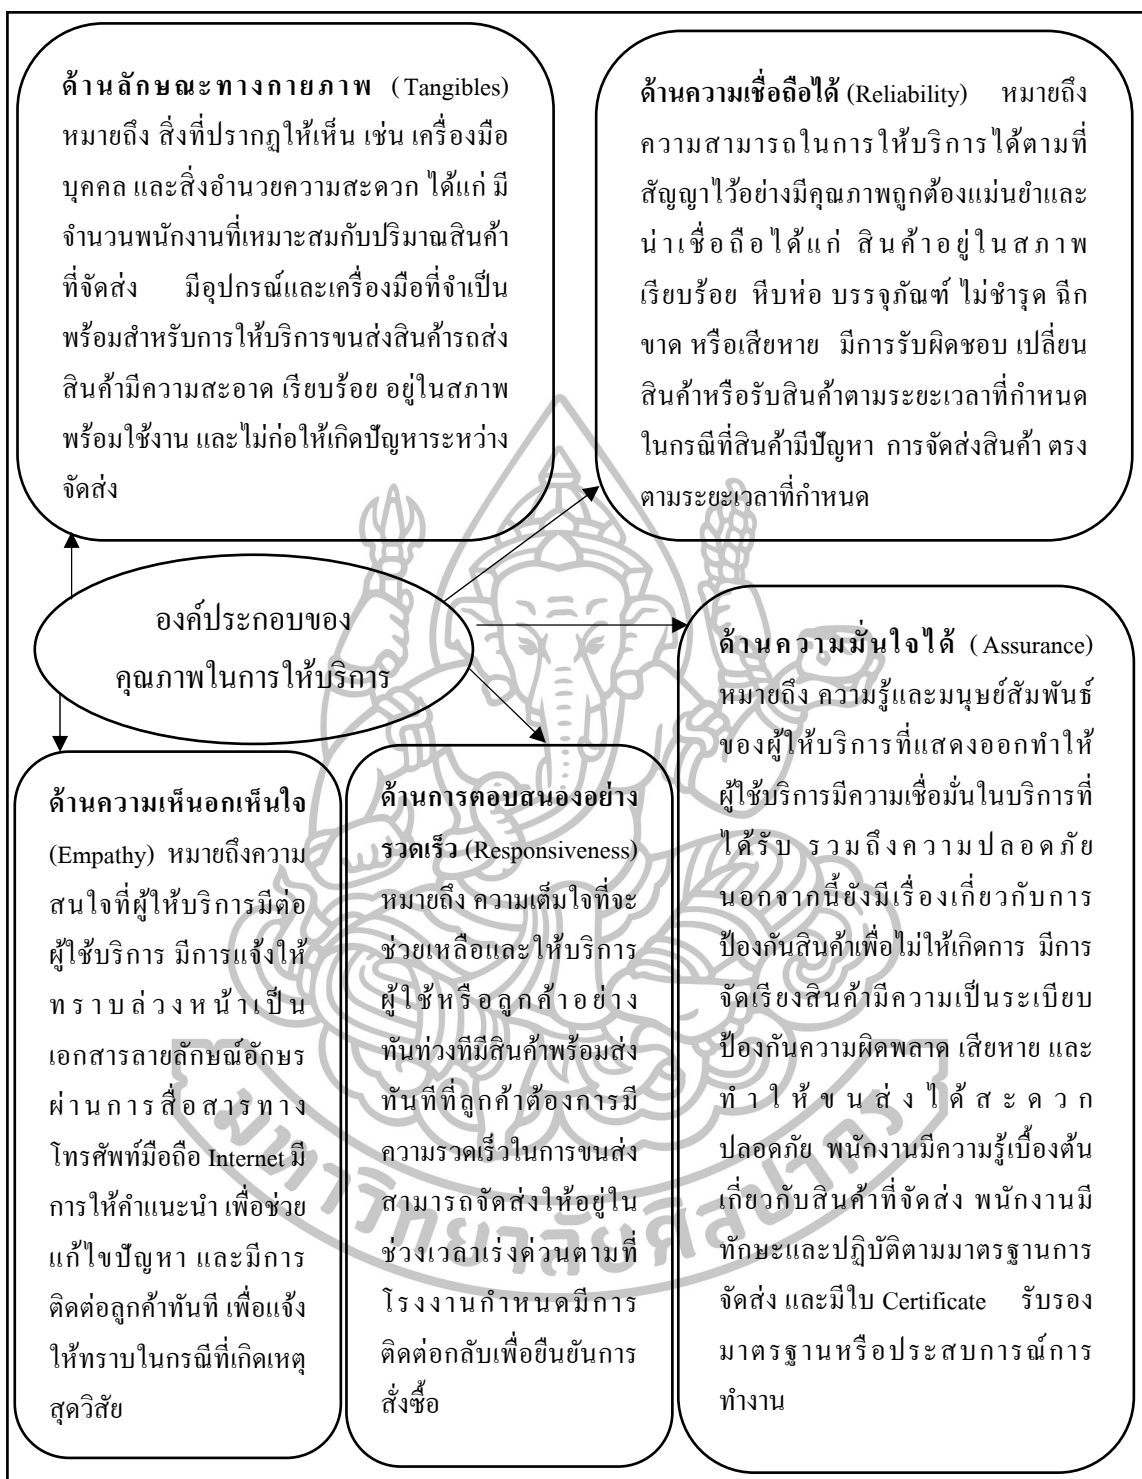 ด้านลักษณะทางกายภาพ (Tangibles)
หมายถึง สิ่งที่ปรากฏให้เห็น เช่น เครื่องมือ
บุคคล และสิ่งอำนวยความสะดวก ได้แก่ มี
จำนวนพนักงานที่เหมาะสมกับปริมาณสินค้า
ที่จัดส่ง มีอุปกรณ์และเครื่องมือที่จำเป็น
พร้อมสำหรับการให้บริการขนส่งสินค้ารถส่ง
สินค้ามีความสะอาด เรียบร้อย อยู่ในสภาพ
พร้อมใช้งาน และไม่ก่อให้เกิดปัญหาระหว่าง
จัดส่ง
ด้านความเชื่อถือได้ (Reliability) หมายถึง
ความสามารถในการให้บริการได้ตามที่
สัญญาไว้อย่างมีคุณภาพถูกต้องแม่นยำและ
น่าเชื่อถือได้แก่ สินค้าอยู่ในสภาพ
เรียบร้อย หีบห่อ บรรจุภัณฑ์ ไม่ชำรุด ฉีก
ขาด หรือเสียหาย มีการรับผิดชอบ เปลี่ยน
สินค้าหรือรับสินค้าตามระยะเวลาที่กำหนด
ในกรณีที่สินค้ามีปัญหา การจัดส่งสินค้า ตรง
ตามระยะเวลาที่กำหนด
องค์ประกอบของ
คุณภาพในการให้บริการ
ด้านความเห็นอกเห็นใจ
(Empathy) หมายถึงความ
สนใจที่ผู้ให้บริการมีต่อ
ผู้ใช้บริการ มีการแจ้งให้
ทราบล่วงหน้าเป็น
เอกสารลายลักษณ์อักษร
ผ่านการสื่อสารทาง
โทรศัพท์มือถือ Internet มี
การให้คำแนะนำ เพื่อช่วย
แก้ไขปัญหา และมีการ
ติดต่อลูกค้าทันที เพื่อแจ้ง
ให้ทราบในกรณีที่เกิดเหตุ
สุดวิสัย
ด้านการตอบสนองอย่าง
รวดเร็ว (Responsiveness)
หมายถึง ความเต็มใจที่จะ
ช่วยเหลือและให้บริการ
ผู้ใช้หรือลูกค้าอย่าง
ทันท่วงทีมีสินค้าพร้อมส่ง
ทันทีที่ลูกค้าต้องการมี
ความรวดเร็วในการขนส่ง
สามารถจัดส่งให้อยู่ใน
ช่วงเวลาเร่งด่วนตามที่
โรงงานกำหนดมีการ
ติดต่อกลับเพื่อยืนยันการ
สั่งซื้อ
ด้านความมั่นใจได้ (Assurance)
หมายถึง ความรู้และมนุษย์สัมพันธ์
ของผู้ให้บริการที่แสดงออกทำให้
ผู้ใช้บริการมีความเชื่อมั่นในบริการที่
ได้รับ รวมถึงความปลอดภัย
นอกจากนี้ยังมีเรื่องเกี่ยวกับการ
ป้องกันสินค้าเพื่อไม่ให้เกิดการ มีการ
จัดเรียงสินค้ามีความเป็นระเบียบ
ป้องกันความผิดพลาด เสียหาย และ
ทำให้ขนส่งได้สะดวก
ปลอดภัย พนักงานมีความรู้เบื้องต้น
เกี่ยวกับสินค้าที่จัดส่ง พนักงานมี
ทักษะและปฏิบัติตามมาตรฐานการ
จัดส่ง และมีใบ Certificate รับรอง
มาตรฐานหรือประสบการณ์การ
ทำงาน
มหาวิทยาลัยศิลปากร